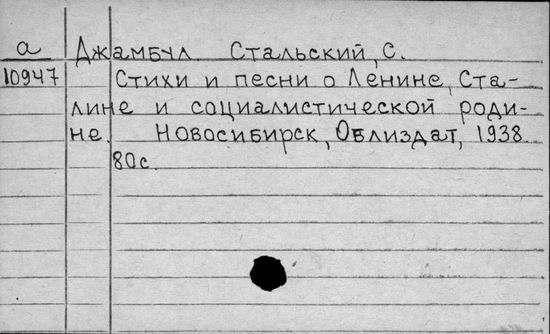 а Джамбул. Стальский, С.
10947 Стихи и песни о Ленине, Ста-
лине и социалистической роди-
не. Новосибирск, Облиздат, 1938
80с.